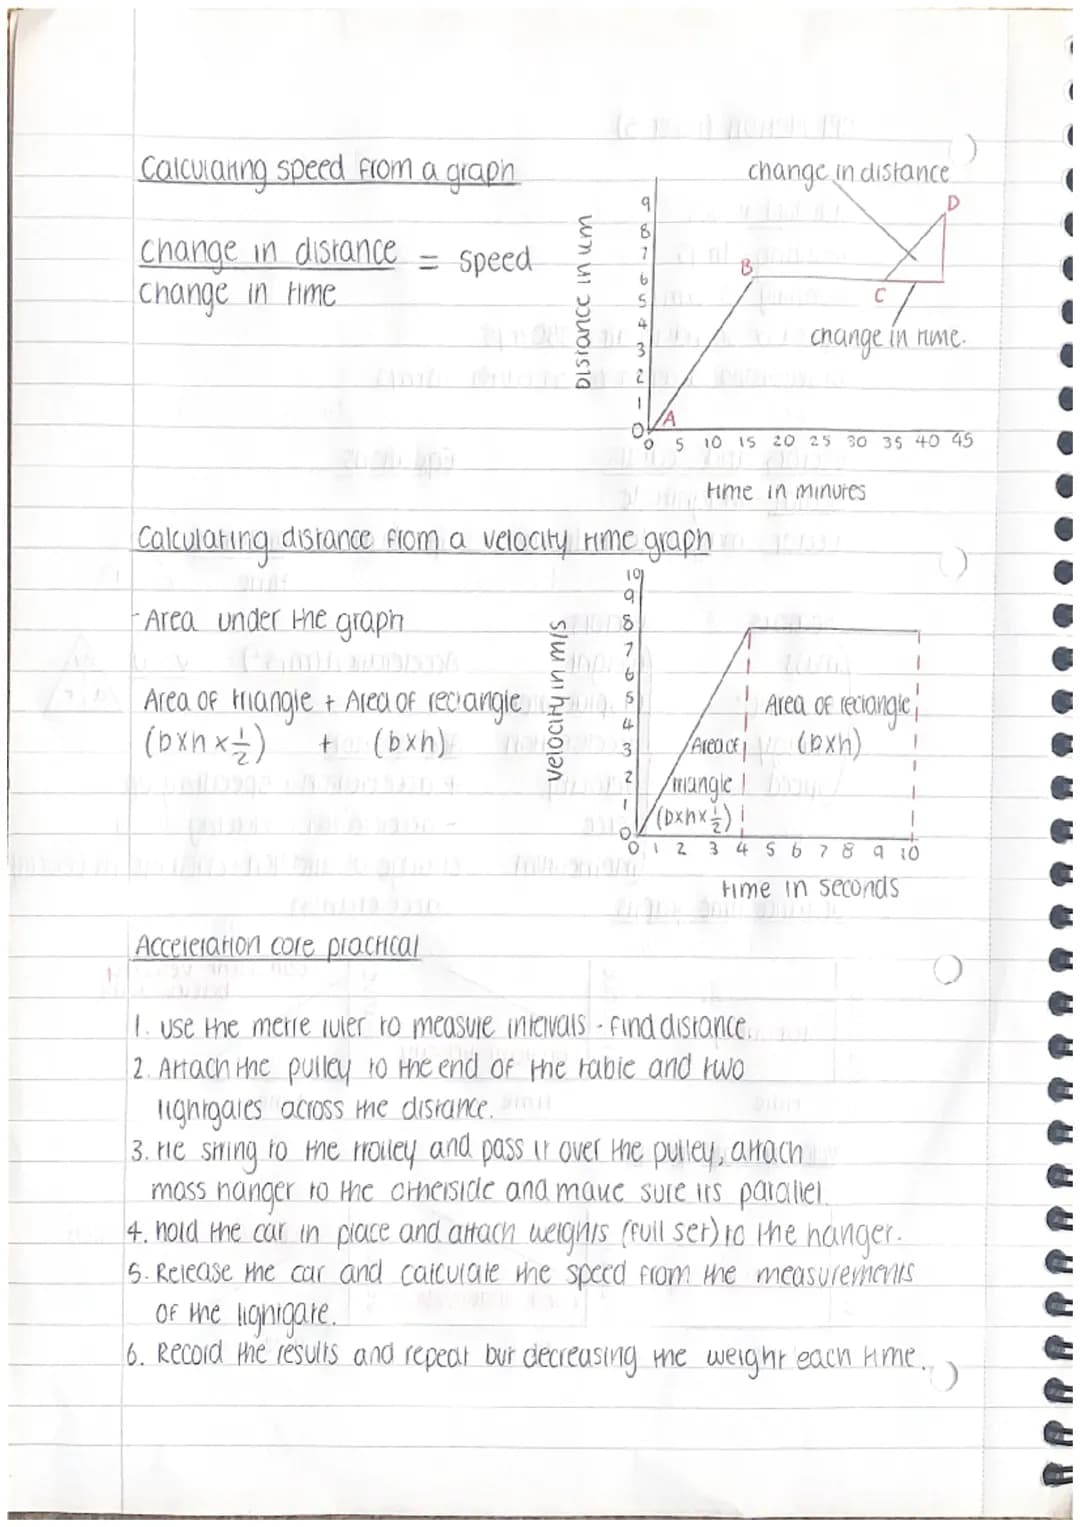 Calculating speed from a graph
change in distance = speed
change in time
change in distance
D
B
C
change in time.
A
Distance in um
9
8
7
6
5
4
3
2
1
0
0 5 10 15 20 25 30 35 40 45
time in minutes
Calculating distance from a velocity time graph
- Area under the graph
Area of triangle + Area of rectangle
(b×h×½) + (b×h)
velocity in m/s
10
9
8
7
6
5
4
3
2
1
0
Area of rectangle
(b×h)
Area of
triangle
(b×h×½)
0 1 2 3 4 5 6 7 8 9 10
time in seconds
Acceleration core practical
1. use the metre ruler to measure intervals - find distance.
2. Attach the pulley to the end of the table and two
lightgates across the distance.
3. tie string to the trolley and pass it over the pulley, attach
mass hanger to the otherside and make sure its parallel.
4. hold the car in place and attach weights (full set) to the hanger.
5. Release the car and calculate the speed from the measurements
of the lightgate.
6. Record the results and repeat but decreasing the weight each time.